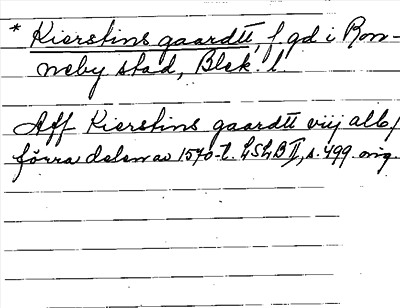 * Kierstins gaardtt, f gd i Ron-
neby stad, Blek. l.
Aff Kierstins gaardtt viij alb/
förra delen av 1570-t. LSLB II, s. 499. orig.